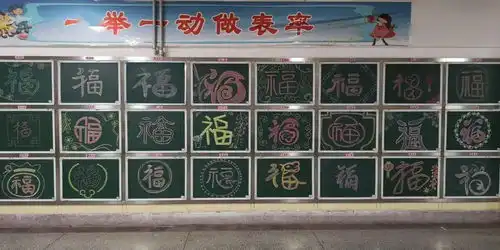 一举一动做表率
福 福 福 福 福 福 福 福
福 福 福 福 福 福 福 福
福 福 福 福 福 福 福 福